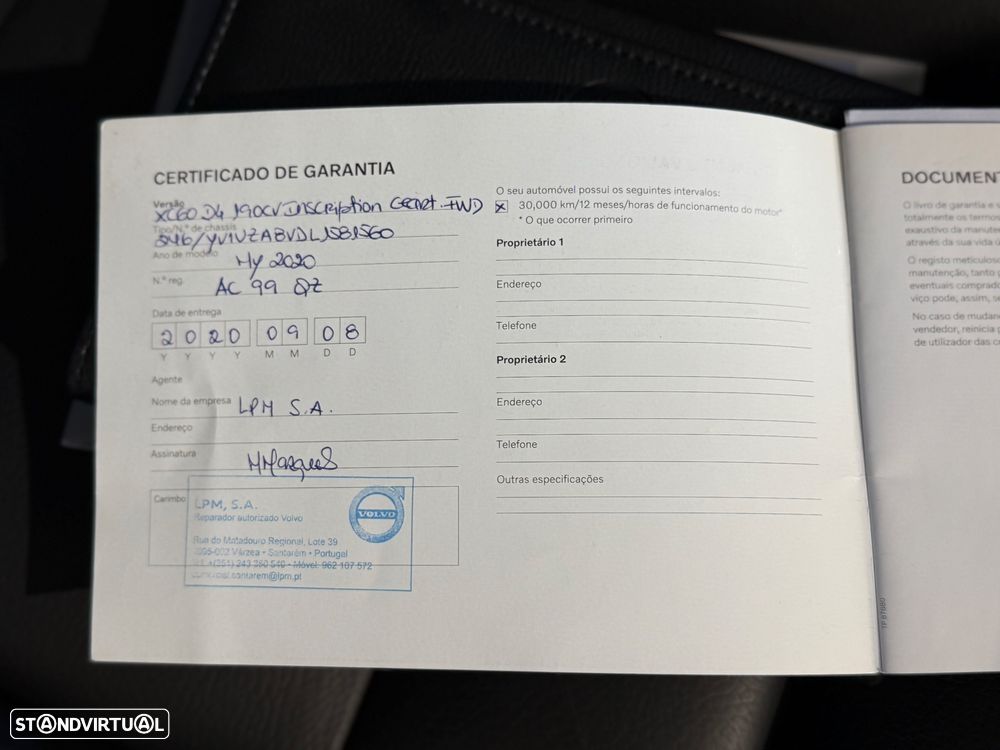 CERTIFICADO DE GARANTIA
Versão
XC60 D4 190CV Inscription Geart. FWD
Tipo/N.º de chassis
246/YV1UZABVDL1581560
Ano de modelo
My 2020
N.º reg.
AC 99 QZ
Data de entrega
2020 09 08
Y Y Y Y M M D D
Agente
Nome da empresa
LPM S.A.
Endereço
Assinatura
MMarques
Carimbo
LPM, S.A.
Reparador autorizado Volvo
VOLVO
Rua do Matadouro Regional, Lote 39
2005-002 Várzea • Santarém • Portugal
Móvel: 962 107 572
santarem@lpm.pt
O seu automóvel possui os seguintes intervalos:
x 30,000 km/12 meses/horas de funcionamento do motor*
* O que ocorrer primeiro
Proprietário 1
Endereço
Telefone
Proprietário 2
Endereço
Telefone
Outras especificações
TP 87680
DOCUMENT
O livro de garantia e
totalmente os termos
exaustivo da manute
através da sua vida ú
O registo meticuloso
manutenção, tanto
eventuais comprado
viço pode, assim, se
No caso de mudan
vendedor, reinicia
de utilizador das c
STANDVIRTUAL